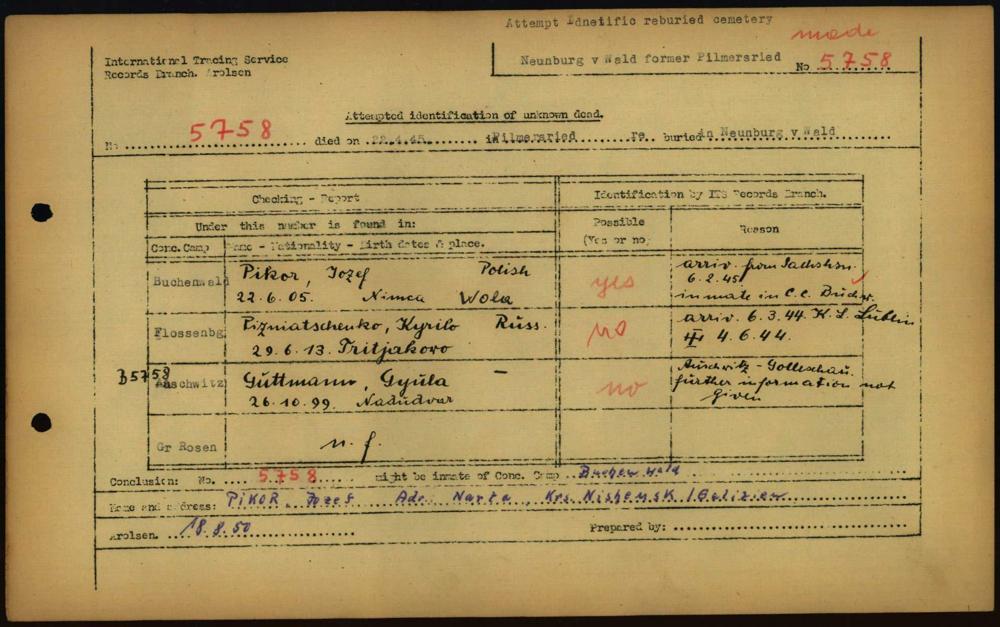 Attempt Idnetific reburied cemetery
made
International Tracing Service
Neunburg v Wald former Pilmersried
Records Branch. Arolsen
No 5758
Attempted identification of unknown dead.
No 5758 died on 22.4.45. in Pilmersried re buried in Neunburg v Wald
Checking - Report
Identification by ITS Records Branch.
Under this number is found in:
Possible
(Yes or no)
Reason
Conc. Camp Name - Nationality - Birth dates & place.
Buchenwald
Pikor, Jozef Polish
22.6.05. Nimca Wola
yes
arriv. from Sachshsn.
6.2.45
inmate in C.C. Buchw.
Flossenbg
Pizniatschenko, Kyrilo Russ.
29.6.13. Tritjakowo
no
arriv. 6.3.44 K.L. Lublin
4.6.44.
B5758
Auschwitz
Guttmann, Gyula -
26.10.99. Nadudvar
no
Auschwitz - Golleschau.
further information not
given
Gr Rosen
n. f.
Conclusion: No. 5758 might be inmate of Conc. Camp Buchenwald
Name and address: PIKOR, Jozef Adr. Narta, Krs. Nishewsk / Galizien
Arolsen. 18.8.50
Prepared by: